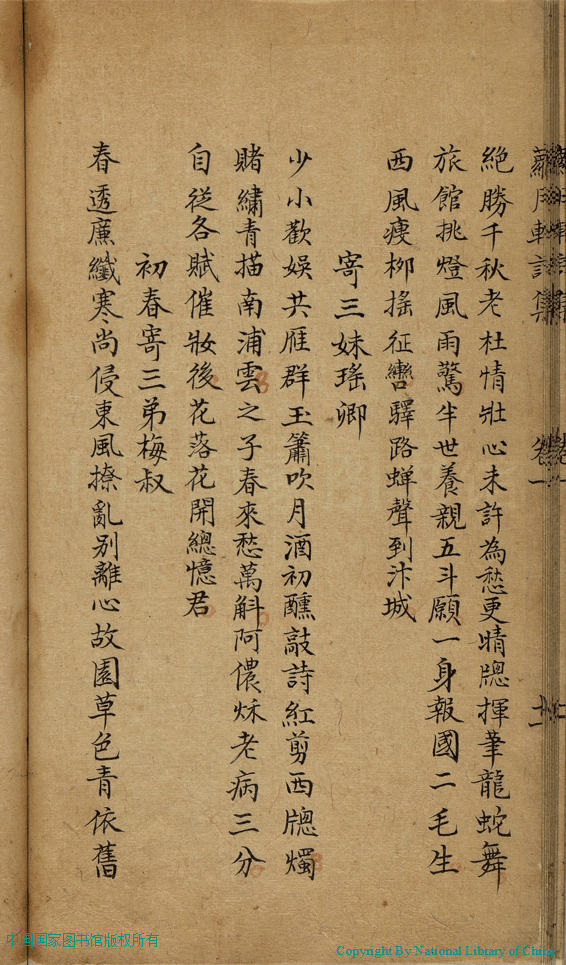 月軒詩集 卷一
絶勝千秋老杜情壯心未許為愁更晴牕揮筆龍蛇舞
旅館挑燈風雨驚半世養親五斗願一身報國二毛生
西風瘦柳搖征轡驛路蟬聲到汴城
寄三妹瑤卿
少小歡娛共雁群玉簫吹月酒初醺敲詩紅剪西牕燭
賭繡青描南浦雲之子春來愁萬斛阿儂秌老病三分
自從各賦催妝後花落花開總憶君
初春寄三弟梅叔
春透廉纖寒尚侵東風撩亂別離心故園草色青依舊
中国国家图书馆版权所有
Copyright By National Library of China